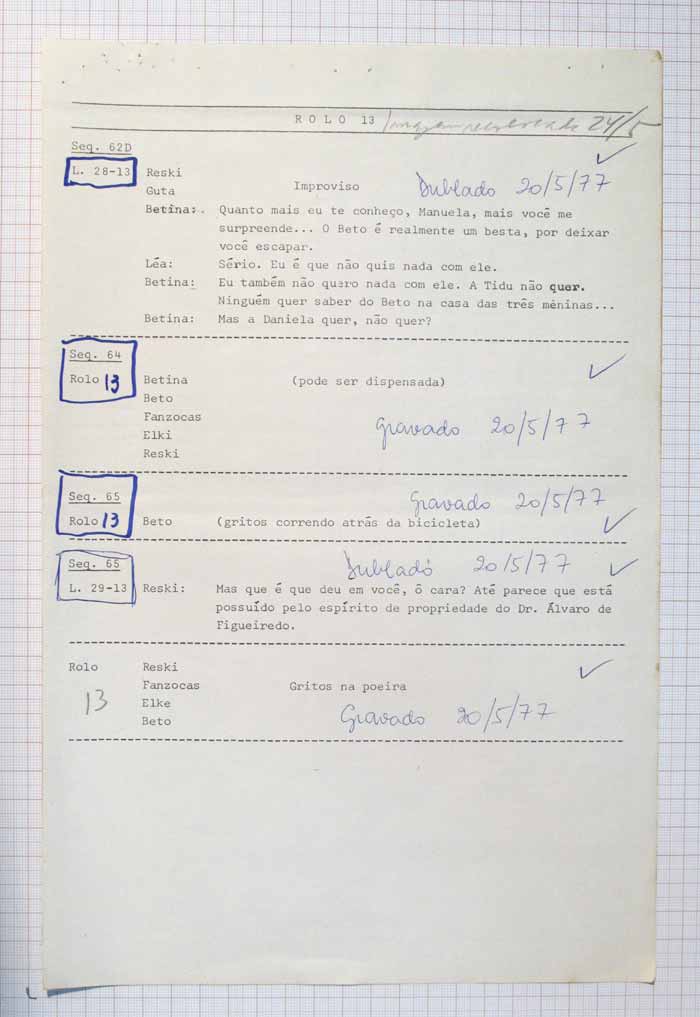 ROLO 13 24/5
Seq. 62D
L. 28-13 Reski
Guta Improviso Dublado 20/5/77
Betina: Quanto mais eu te conheço, Manuela, mais você me
surpreende... O Beto é realmente um besta, por deixar
você escapar.
Léa: Sério. Eu é que não quis nada com ele.
Betina: Eu também não quero nada com ele. A Tidu não quer.
Ninguém quer saber do Beto na casa das três méninas...
Betina: Mas a Daniela quer, não quer?
Seq. 64
Rolo 13 Betina (pode ser dispensada)
Beto
Fanzocas Gravado 20/5/77
Elki
Reski
Seq. 65 Gravado 20/5/77
Rolo 13 Beto (gritos correndo atrás da bicicleta)
Seq. 65 Dublado 20/5/77
L. 29-13 Reski: Mas que é que deu em você, ô cara? Até parece que está
possuído pelo espírito de propriedade do Dr. Álvaro de
Figueiredo.
Rolo Reski
13 Fanzocas Gritos na poeira
Elke
Beto Gravado 20/5/77